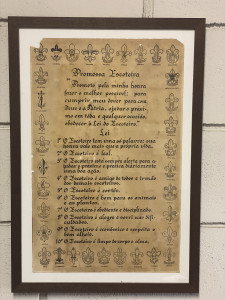 Promessa Escoteira
"Prometo pela minha honra
fazer o melhor possível para:
cumprir o meu dever para com
Deus e a Pátria, ajudar o próxi-
mo em tôda e qualquer ocasião,
obedecer à Lei do Escoteiro."
Lei
1º O Escoteiro tem uma só palavra; sua
honra vale mais que a própria vida.
2º O Escoteiro é leal.
3º O Escoteiro está sempre alerta para a-
judar o próximo e pratica diàriamente
uma boa ação.
4º O Escoteiro é amigo de todos e irmão
dos demais escoteiros.
5º O Escoteiro é cortês.
6º O Escoteiro é bom para os animais
e as plantas.
7º O Escoteiro é obediente e disciplinado.
8º O Escoteiro é alegre e sorri nas difi-
culdades.
9º O Escoteiro é econômico e respeita o
bem alheio.
10º O Escoteiro é limpo de corpo e alma.